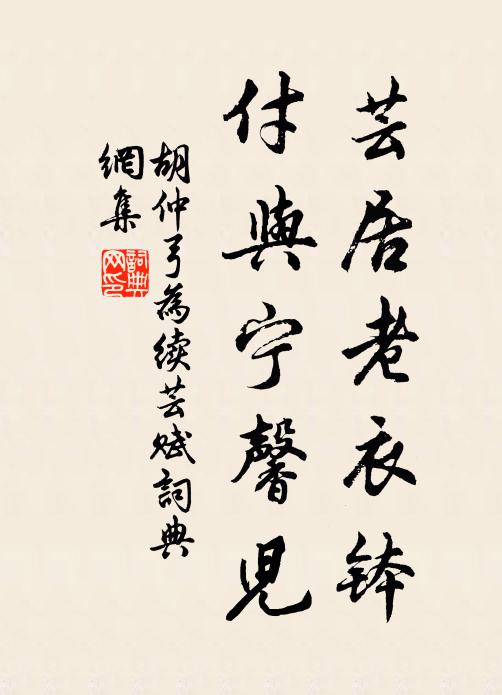 芸居老衣鉢
付與宁馨児
胡仲弓為续芸赋詞典
網集
詞典
网印